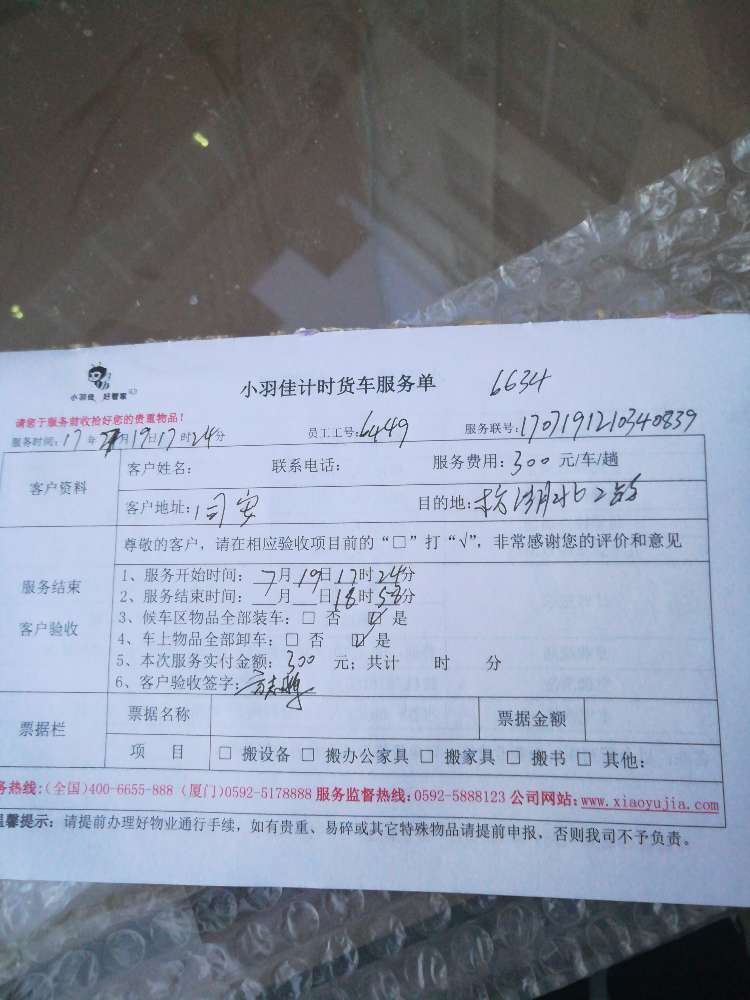 小羽佳计时货车服务单 6634
小羽佳 好管家
请您于服务前收拾好您的贵重物品!
服务时间:17年7月19日17时24分 员工工号:6449 服务联号:1707191210340839
客户资料
客户姓名: 联系电话: 服务费用:300元/车/趟
客户地址:同安 目的地:
尊敬的客户，请在相应验收项目前的“□”打“√”，非常感谢您的评价和意见
服务结束
客户验收
1、服务开始时间: 7月19日17时24分
2、服务结束时间: 月 日18时58分
3、候车区物品全部装车:□ 否 ☑ 是
4、车上物品全部卸车:□ 否 ☑ 是
5、本次服务实付金额:300 元；共计 时 分
6、客户验收签字:
票据栏
票据名称 票据金额
项 目 □ 搬设备 □ 搬办公家具 □ 搬家具 □ 搬书 □ 其他:
务热线:(全国)400-6655-888 (厦门)0592-5178888 服务监督热线:0592-5888123 公司网站:www.xiaoyujia.com
温馨提示: 请提前办理好物业通行手续，如有贵重、易碎或其它特殊物品请提前申报，否则我司不予负责。